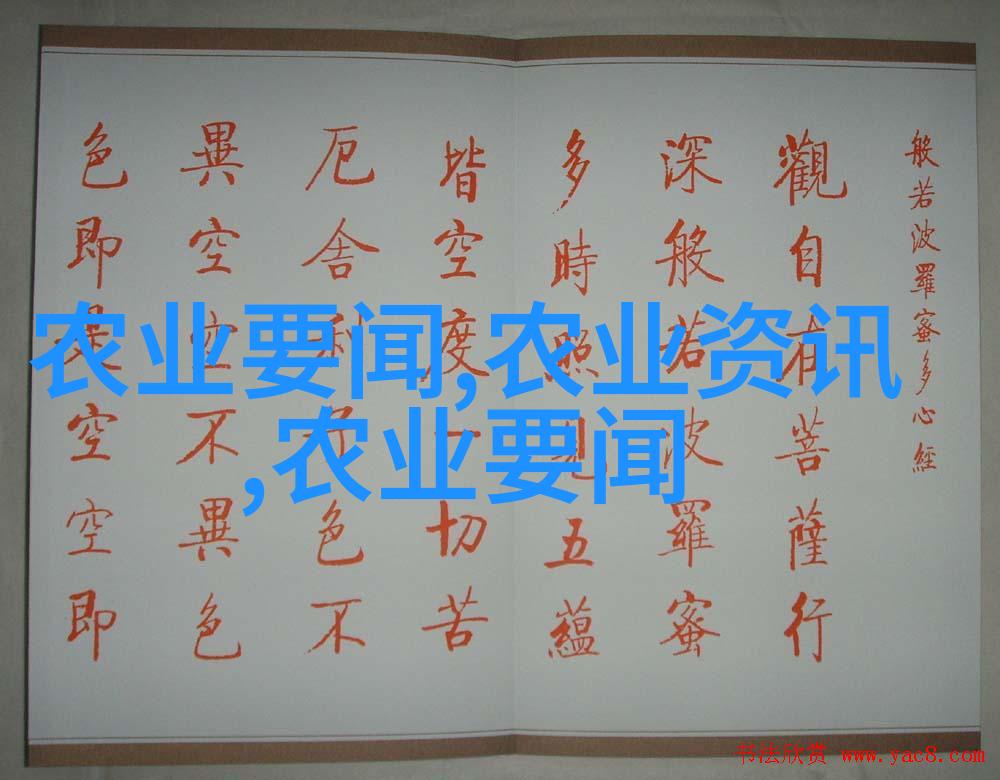 般若波羅蜜多心經
觀自在菩薩行
深般若波羅蜜
多時照見五蘊
皆空度一切苦
厄舍利子色不
異空空不異色
色即是空空即
农业要闻,农业资讯
,农业要闻
书法欣赏 www.yac8.com